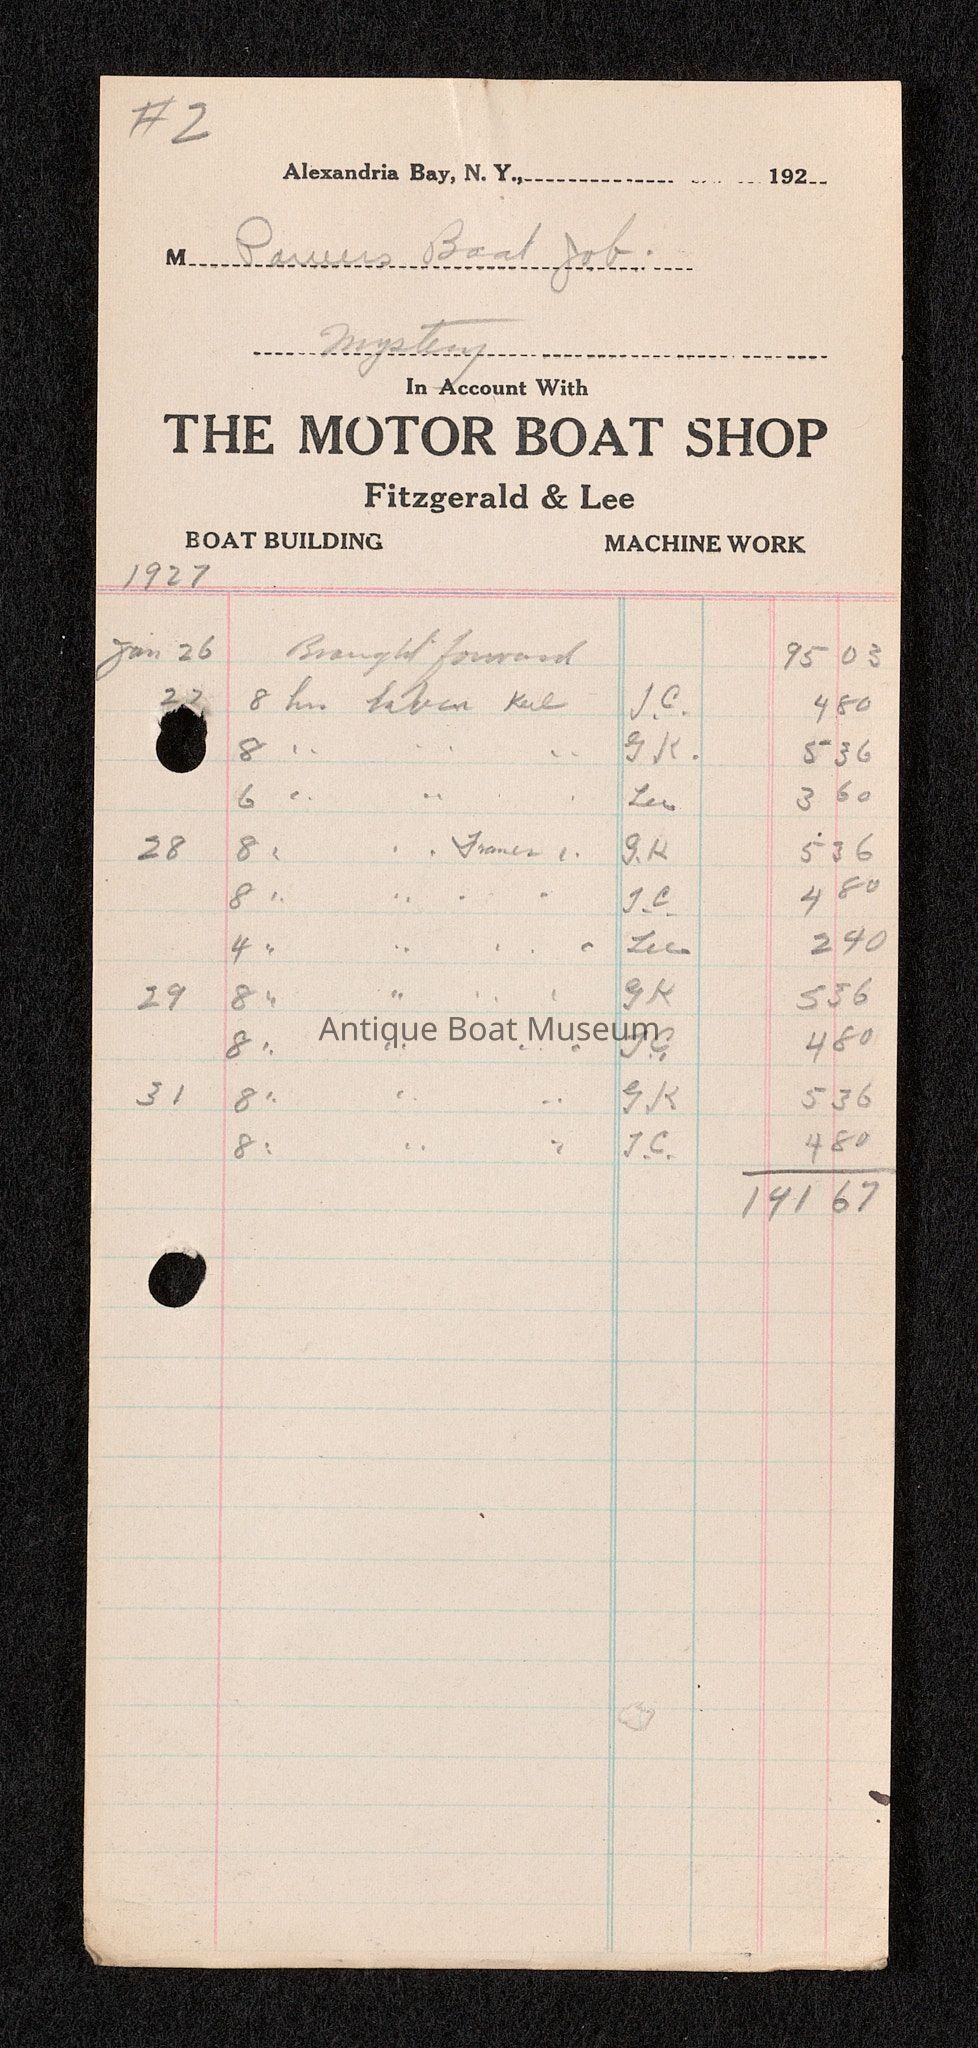 #2
Alexandria Bay, N. Y., 192
M Powers Boat Job.
Mystery
In Account With
THE MOTOR BOAT SHOP
Fitzgerald & Lee
BOAT BUILDING MACHINE WORK
1927
Jan 26 Brought forward 95 03
27 8 hrs labor Keel J.C. 4 80
8 " " " G.K. 5 36
6 " " " " Lee 3 60
28 8 " " " Frames " G.K 5 36
8 " " " " J.C. 4 80
4 " " " " " Lee 2 40
29 8 " " " " GK 5 36
8 " " " " J.C. 4 80
Antique Boat Museum
31 8 " " " GK 5 36
8 " " " J.C. 4 80
141 67